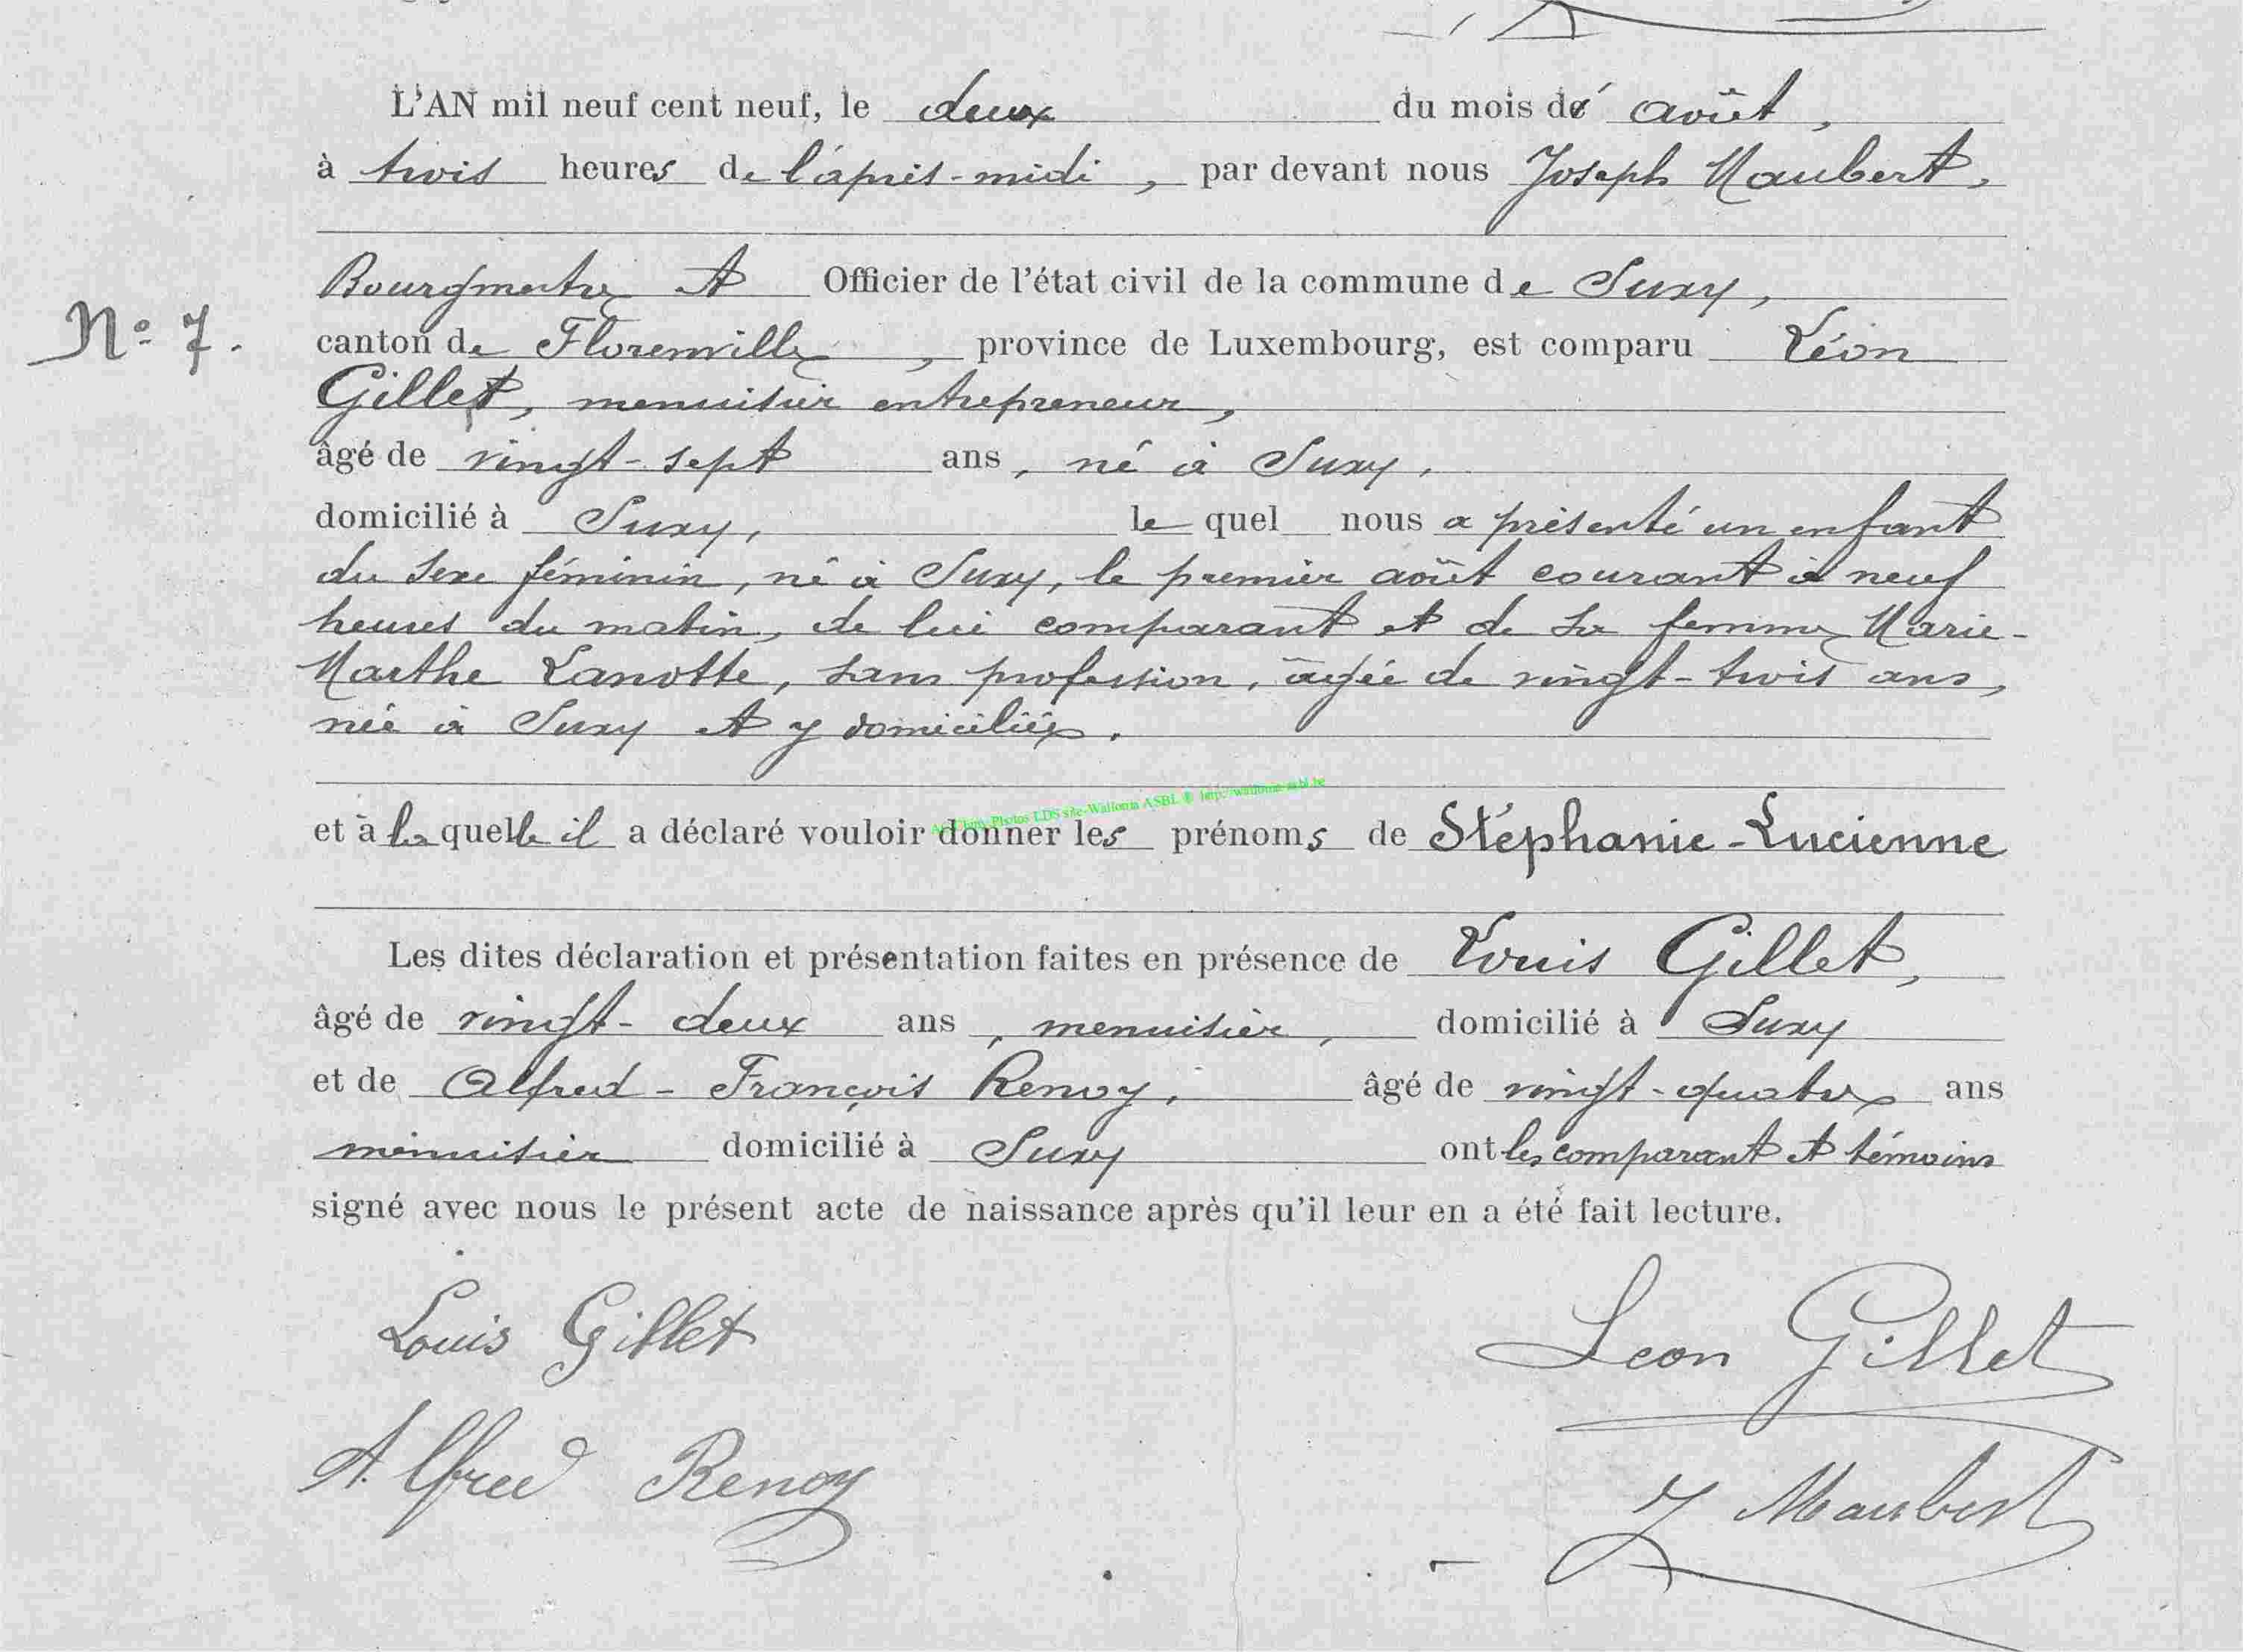 L'AN mil neuf cent neuf, le deux du mois d' août,
à trois heures de l'après-midi, par devant nous Joseph Maubert,
Bourgmestre et Officier de l'état civil de la commune de Suxy,
N° 7.
canton de Florenville, province de Luxembourg, est comparu Léon
Gillet, menuisier entrepreneur,
âgé de vingt-sept ans, né à Suxy,
domicilié à Suxy, le quel nous a présenté un enfant
du sexe féminin, né à Suxy, le premier août courant à neuf
heures du matin, de lui comparant et de sa femme Marie-
Marthe Lanotte, sans profession, âgée de vingt-trois ans,
née à Suxy et y domiciliée.
et à la quelle il a déclaré vouloir donner les prénoms de Stéphanie-Lucienne
Photos LDS site-Wallonia ASBL ® http://wallonia-asbl.be
Les dites déclaration et présentation faites en présence de Louis Gillet,
âgé de vingt-deux ans, menuisier, domicilié à Suxy
et de Alfred-François Renoy, âgé de vingt-quatre ans
menuisier domicilié à Suxy ont les comparant et témoins
signé avec nous le présent acte de naissance après qu'il leur en a été fait lecture.
Louis Gillet
Leon Gillet
Alfred Renoy
J Maubert